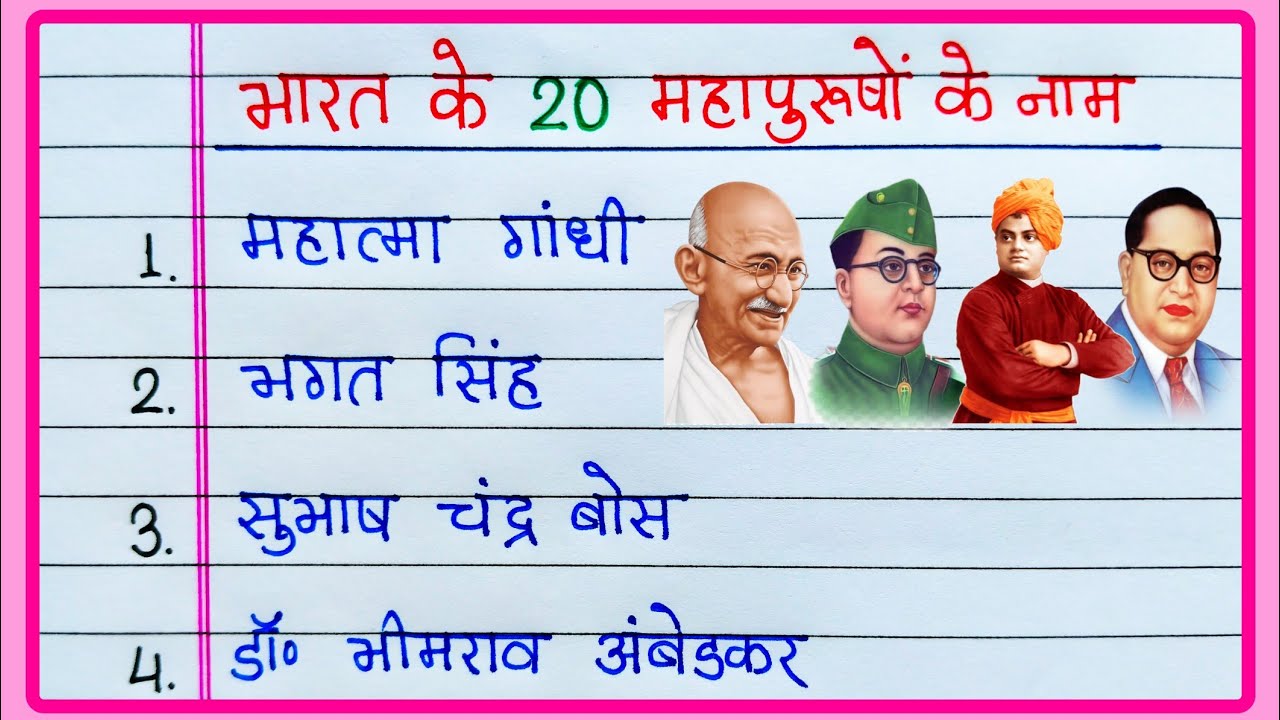 भारत के 20 महापुरूषों के नाम
1. महात्मा गांधी
2. भगत सिंह
3. सुभाष चंद्र बोस
4. डॉ० भीमराव अंबेडकर